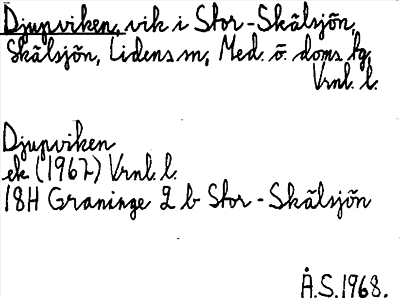 Djupviken, vik i Stor-Skälsjön,
Skälsjön, Lidens sn, Med. ö. doms tg,
Vrnl. l.
Djupviken
ek (1967) Vrnl. l.
18H Graninge 2 b Stor-Skälsjön
Å.S. 1968.